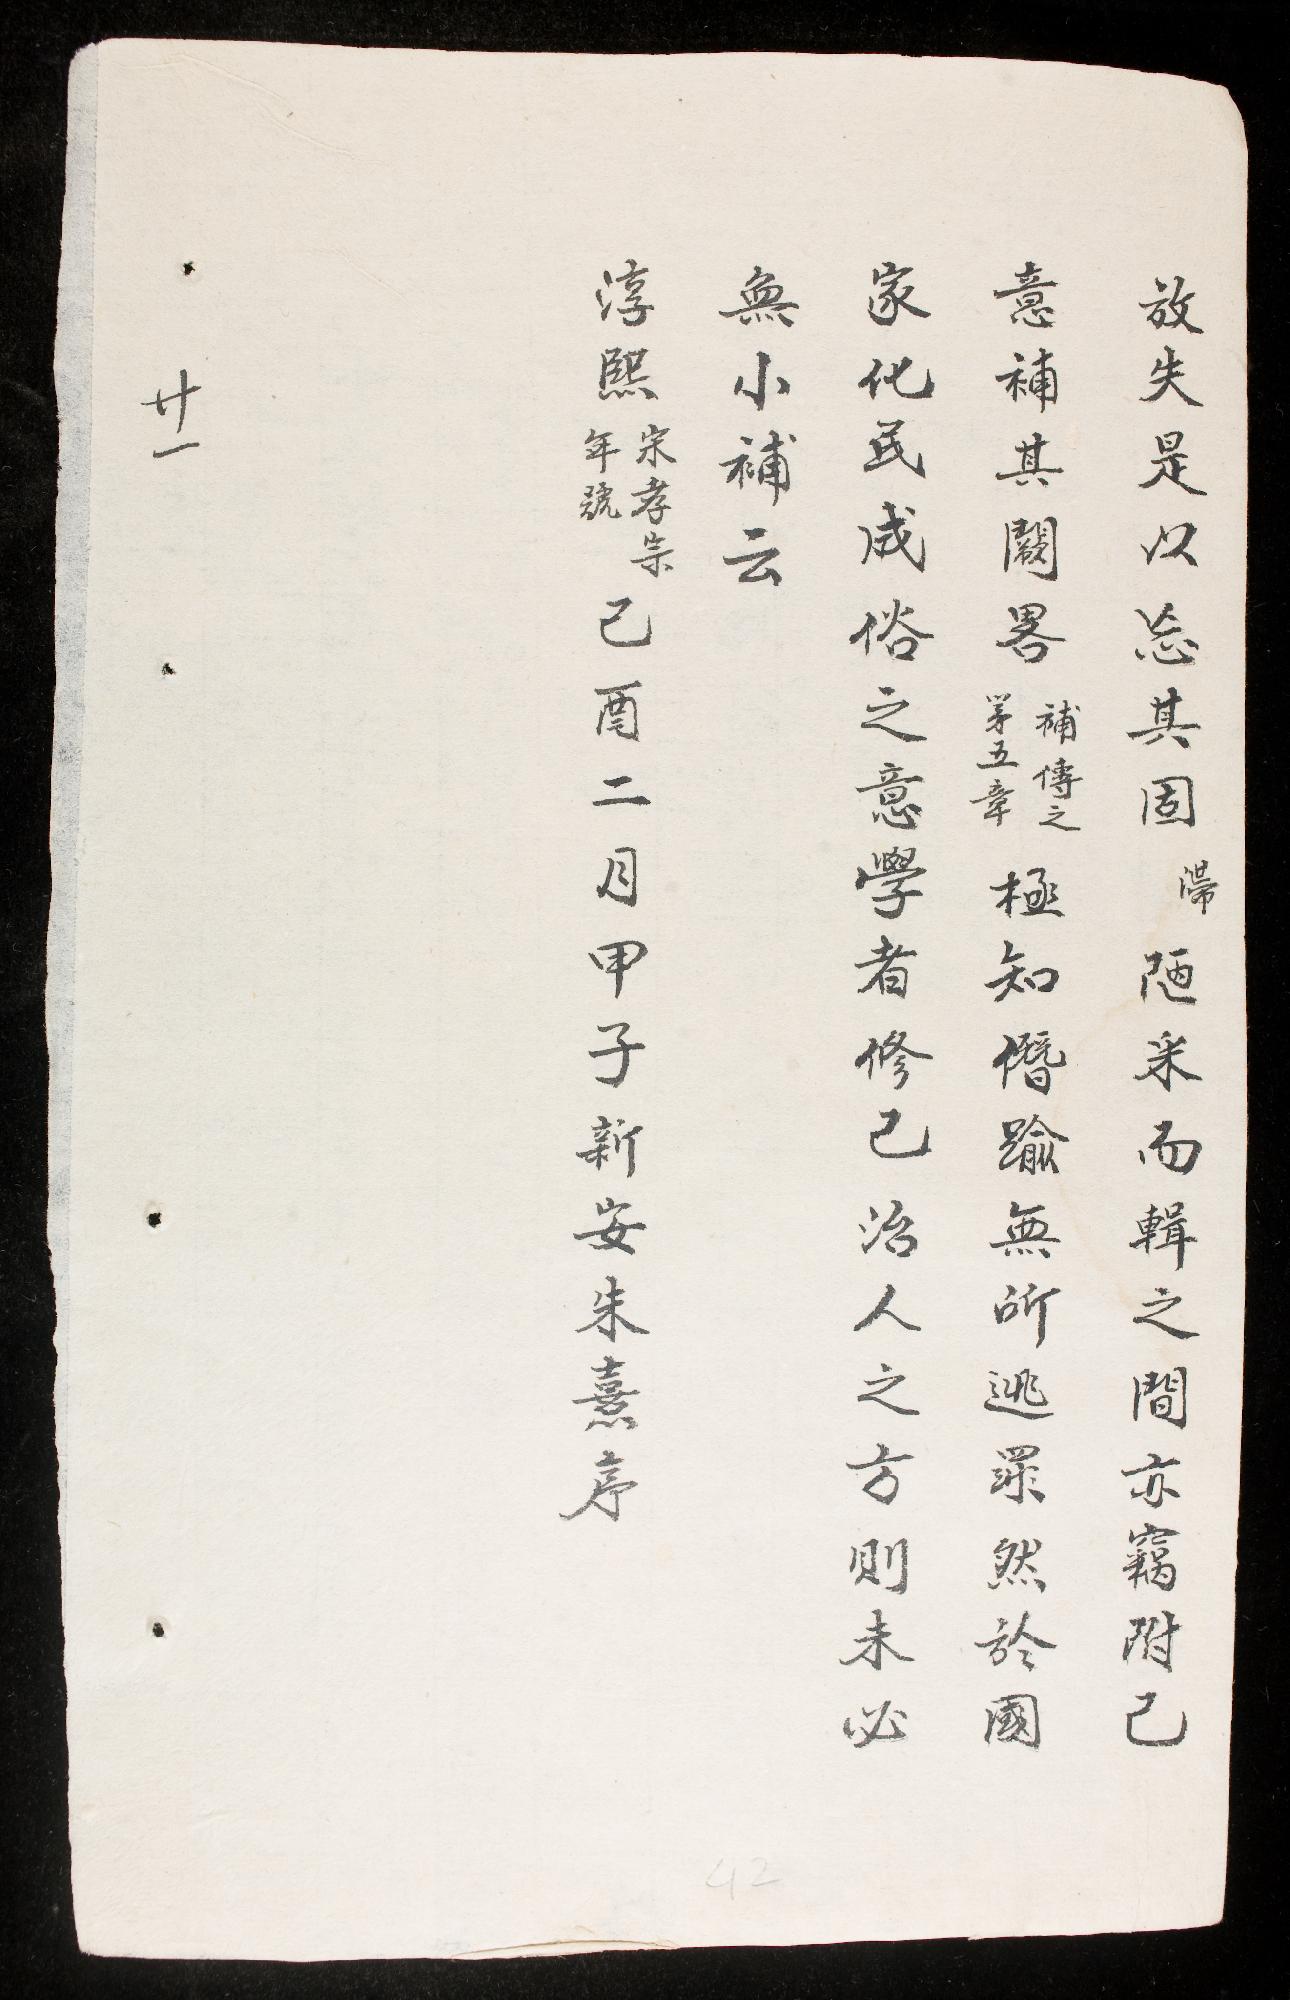 放失是以忘其固滯陋采而輯之間亦竊附己
意補其闕畧補傳之第五章極知僭踰無所逃罪然於國
家化民成俗之意學者修己治人之方則未必
無小補云
淳熙宋孝宗年號己酉二月甲子新安朱熹序
廿一
42